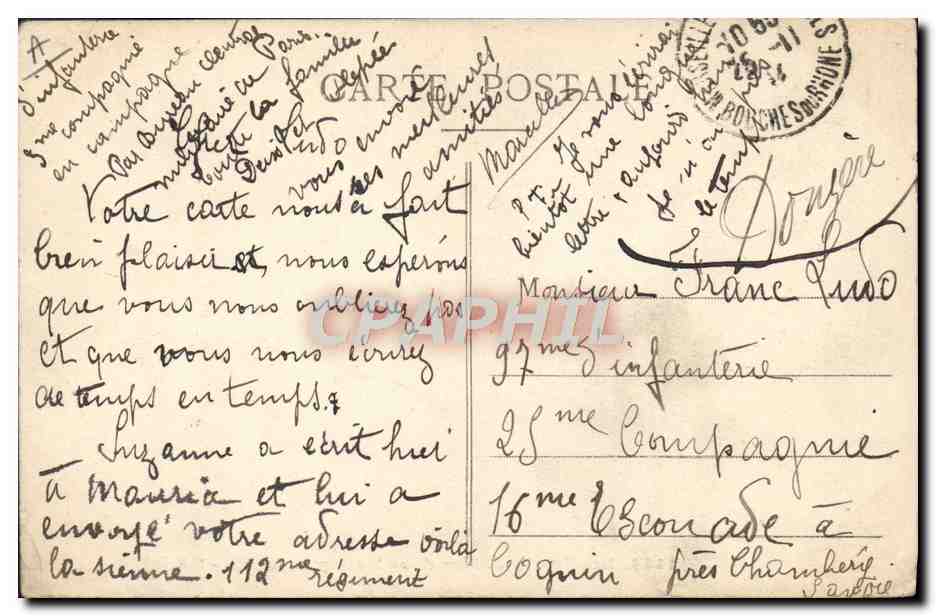 CARTE POSTALE
Votre carte nous a fait
bien plaisir et, nous espérons
que vous nous oubliez pas
et que vous nous écrirez
de temps en temps.
Suzanne a écrit hier
à Maurice et lui a
envoyé votre adresse voilà
la sienne. 112me régiment
d'infanterie
5me compagnie
en campagne
Par Bureau Central
Paris.
Toute la famille
vous envoie
ses meilleures
amitiés
bientôt une longue
lettre
je n'ai
le temps
BOUCHES DU RHONE
Monsieur Franc Ludo
97me d'infanterie
25me Compagnie
16me Escouade à
Cognin près Chambéry
Savoie
CPAPHIL